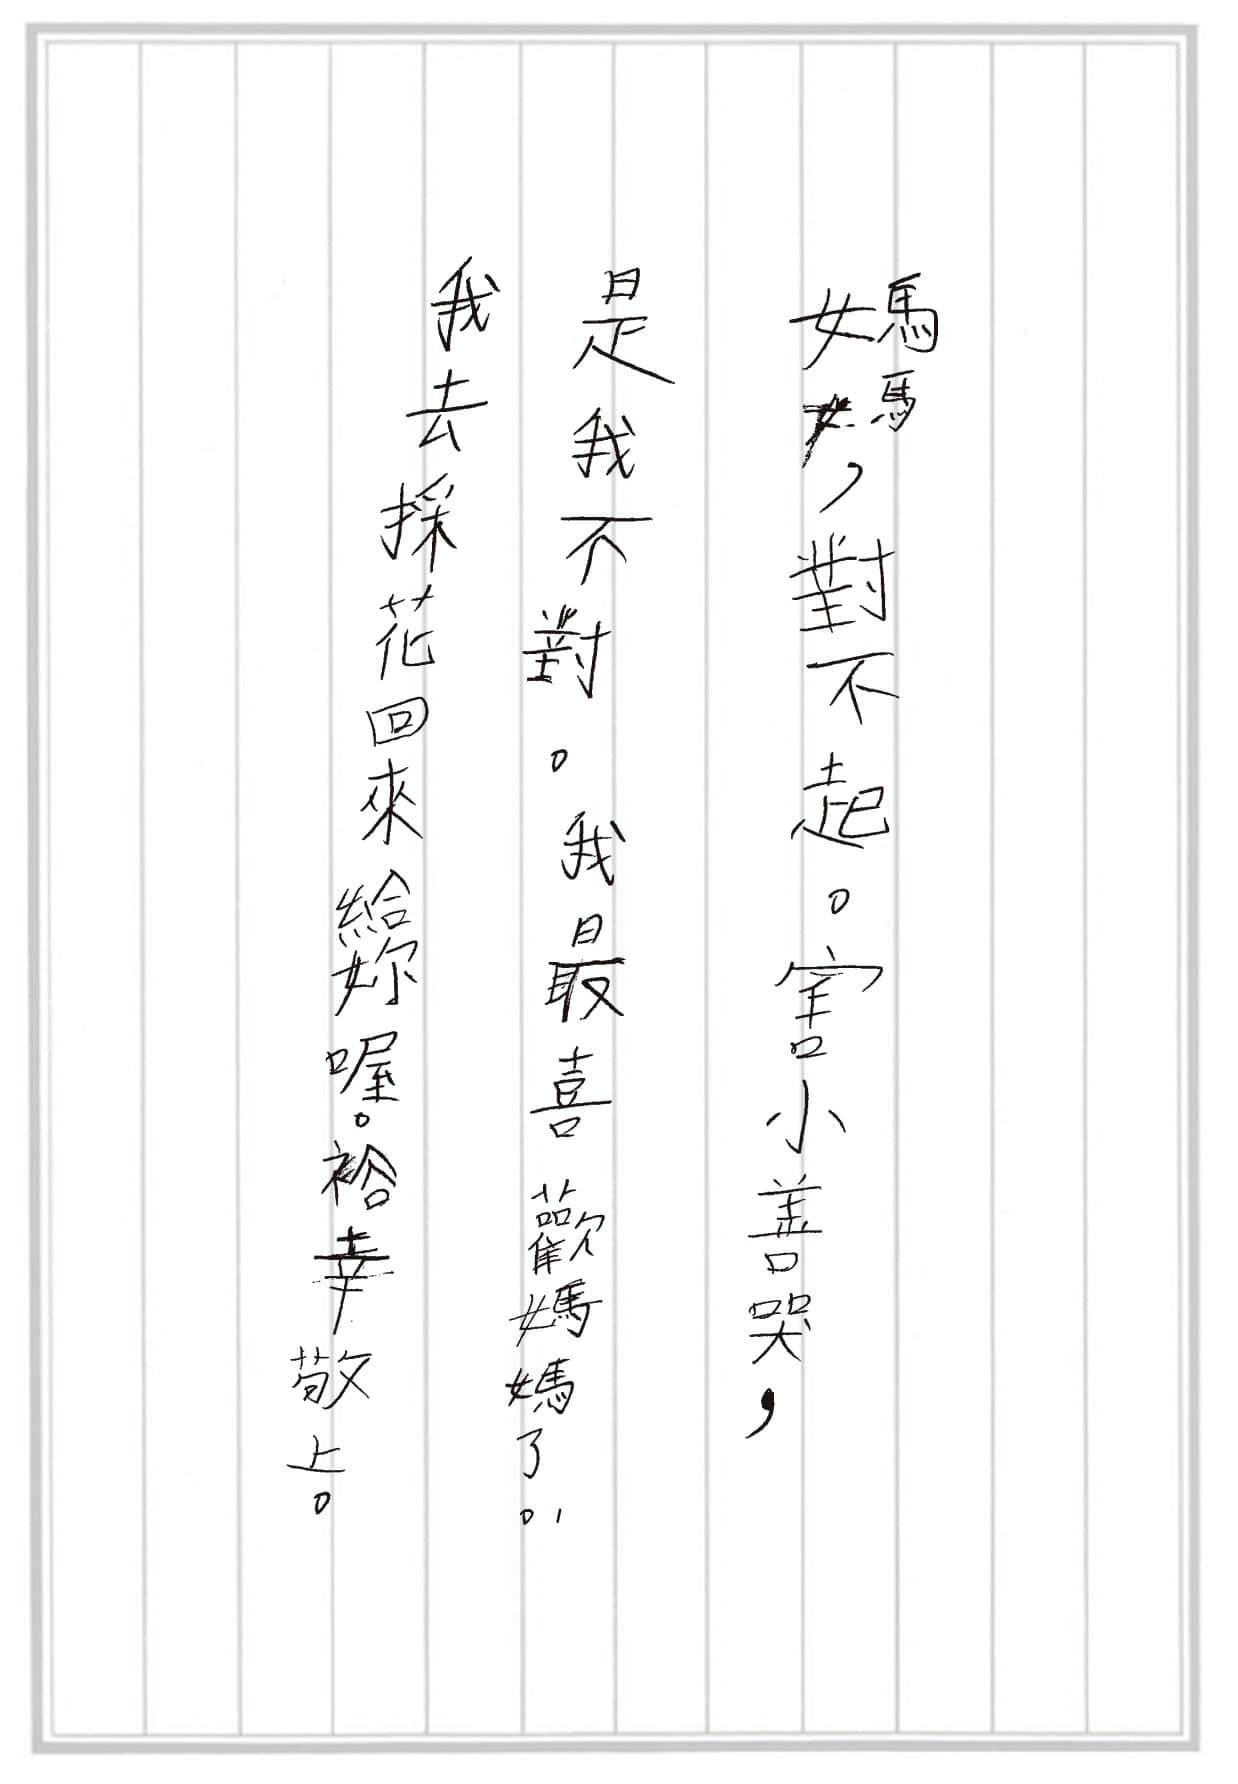 媽媽，對不起。害小善哭，
是我不對。我最喜歡媽媽了。
我去採花回來給妳喔。裕幸敬上。